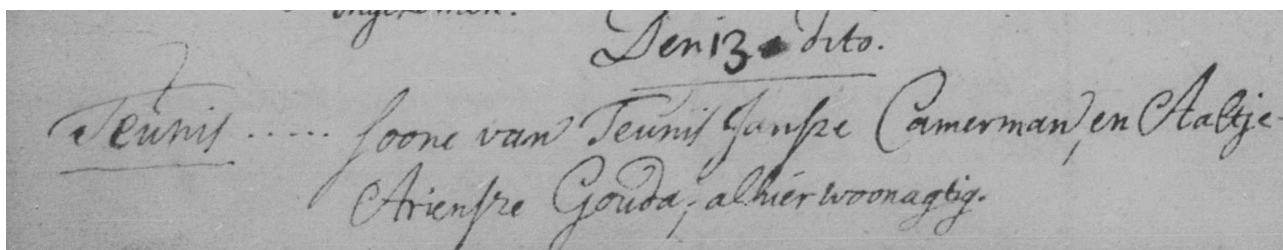 Den 13 dito.
Teunis ..... soone van Teunis Janse Camerman, en Aaltje
Ariense Gouda, alhier woonagtig.